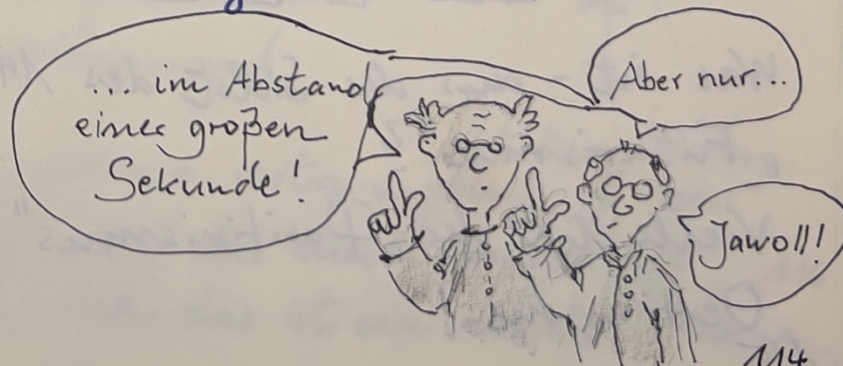 Aber nur...
... im Abstand
einer großen
Sekunde!
Jawoll!
114